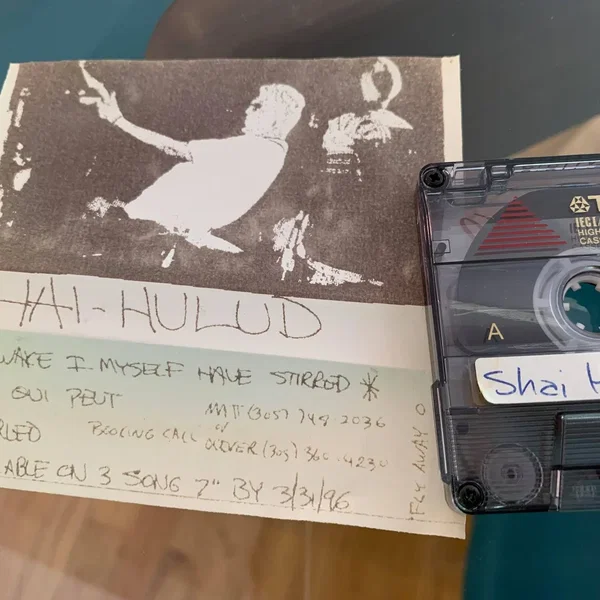 HAI-HULUD
WAKE I MYSELF HAVE STIRRED *
QUI PEUT
MATT (305) 749-2036
BOOKING CALL or
OLIVER (305) 360-4230
RLED
ABLE ON 3 SONG 7" BY 3/31/96
FLY AWAY O
T
IECI/
HIGH
CAS
A
Shai H